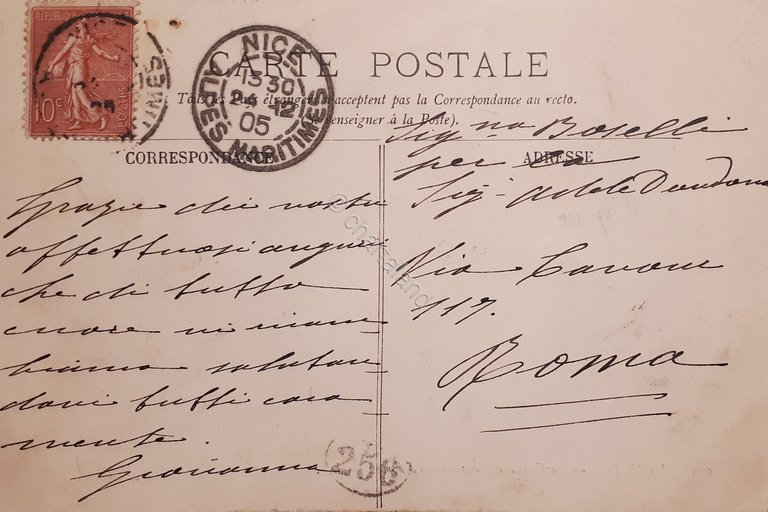 REPUBLIQUE FRANÇAISE
10c
POSTES
NICE
13 30
24 12
05
ALPES MARITIMES
CARTE POSTALE
Tous les Pays étrangers n'acceptent pas la Correspondance au recto.
(Se renseigner à la Poste).
CORRESPONDANCE
ADRESSE
Grazie dei vostri
affettuosi auguri
che di tutto
cuore vi ricam=
biamo salutan=
dovi tutti cara=
mente.
Giovanna
Sig.na Boselli
per
Sig.a Adele Dondona
Via Cavour
117.
Roma
© chartaland